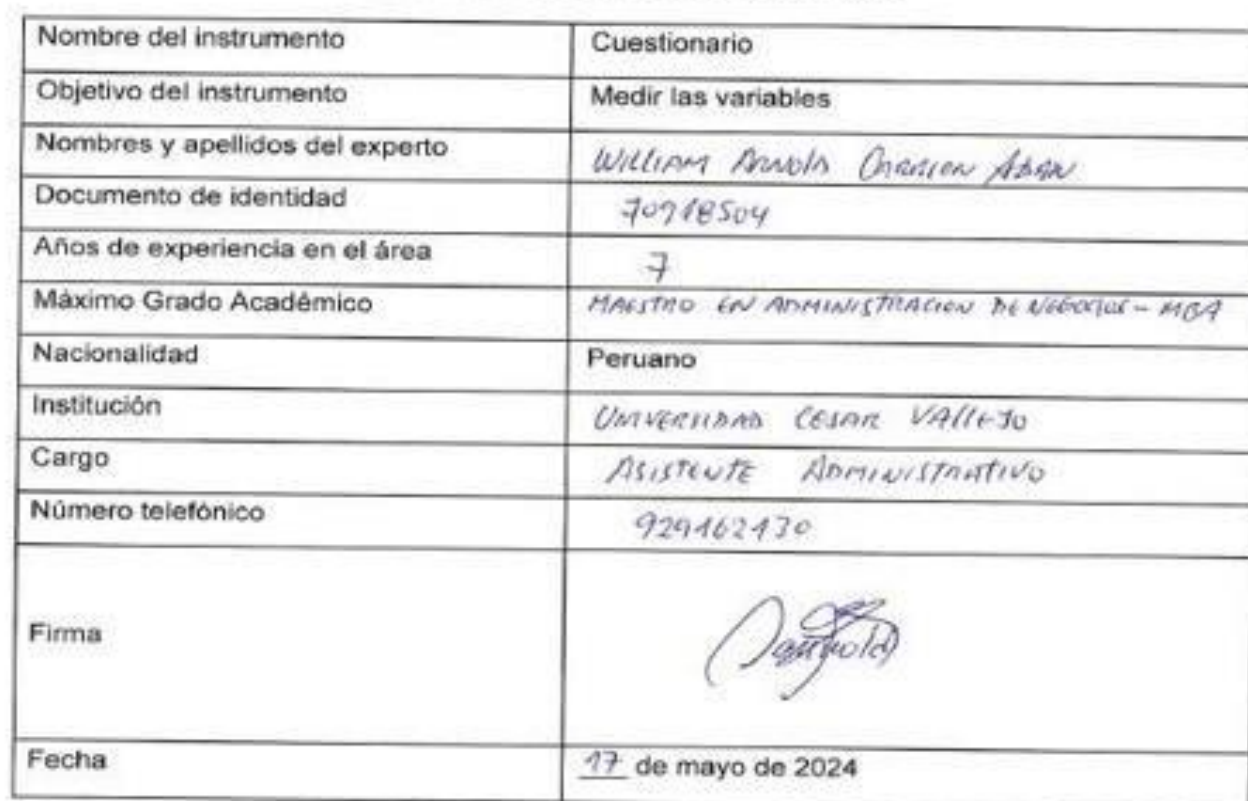 Nombre del instrumento Cuestionario
Objetivo del instrumento Medir las variables
Nombres y apellidos del experto WILLIAM ARNOLD CARRION ADAN
Documento de identidad 70918504
Años de experiencia en el área 7
Máximo Grado Académico MAESTRO EN ADMINISTRACION DE NEGOCIOS - MBA
Nacionalidad Peruano
Institución UNIVERSIDAD CESAR VALLEJO
Cargo ASISTENTE ADMINISTRATIVO
Número telefónico 929162130
Firma
Fecha 17 de mayo de 2024